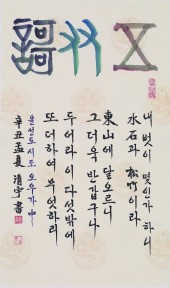 五友謌
내 벗이 몇인가 하니
水石과 松竹이라
東山에 달오르니
그 더욱 반갑구나
두어라 이 다섯밖에
또 더하여 무엇하리
윤선도 시조 오우가 中
辛丑孟夏 清宇書